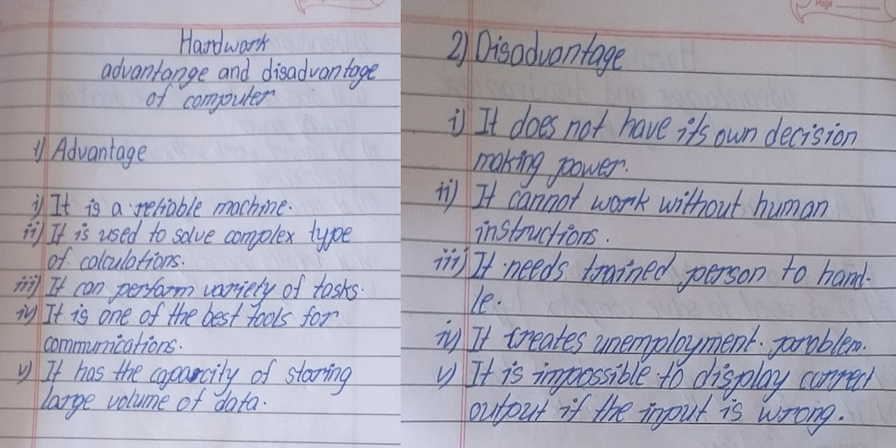 Hardwork
advantange and disadvantage
of computer
1) Advantage
i) It is a reliable machine.
ii) It is used to solve complex type
of calculations.
iii) It can perform variety of tasks.
iv) It is one of the best tools for
communications.
v) It has the capacity of storing
large volume of data.
2) Disadvantage
i) It does not have its own decision
making power.
ii) It cannot work without human
instructions.
iii) It needs trained person to hand-
le.
iv) It creates unemployment problem.
v) It is impossible to display correct
output if the input is wrong.